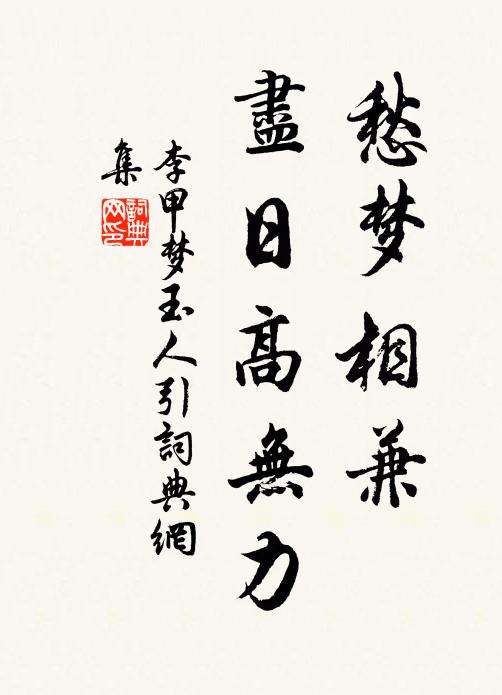 愁梦相兼
盡日高無力
李甲梦玉人引詞典網
集
詞典网印